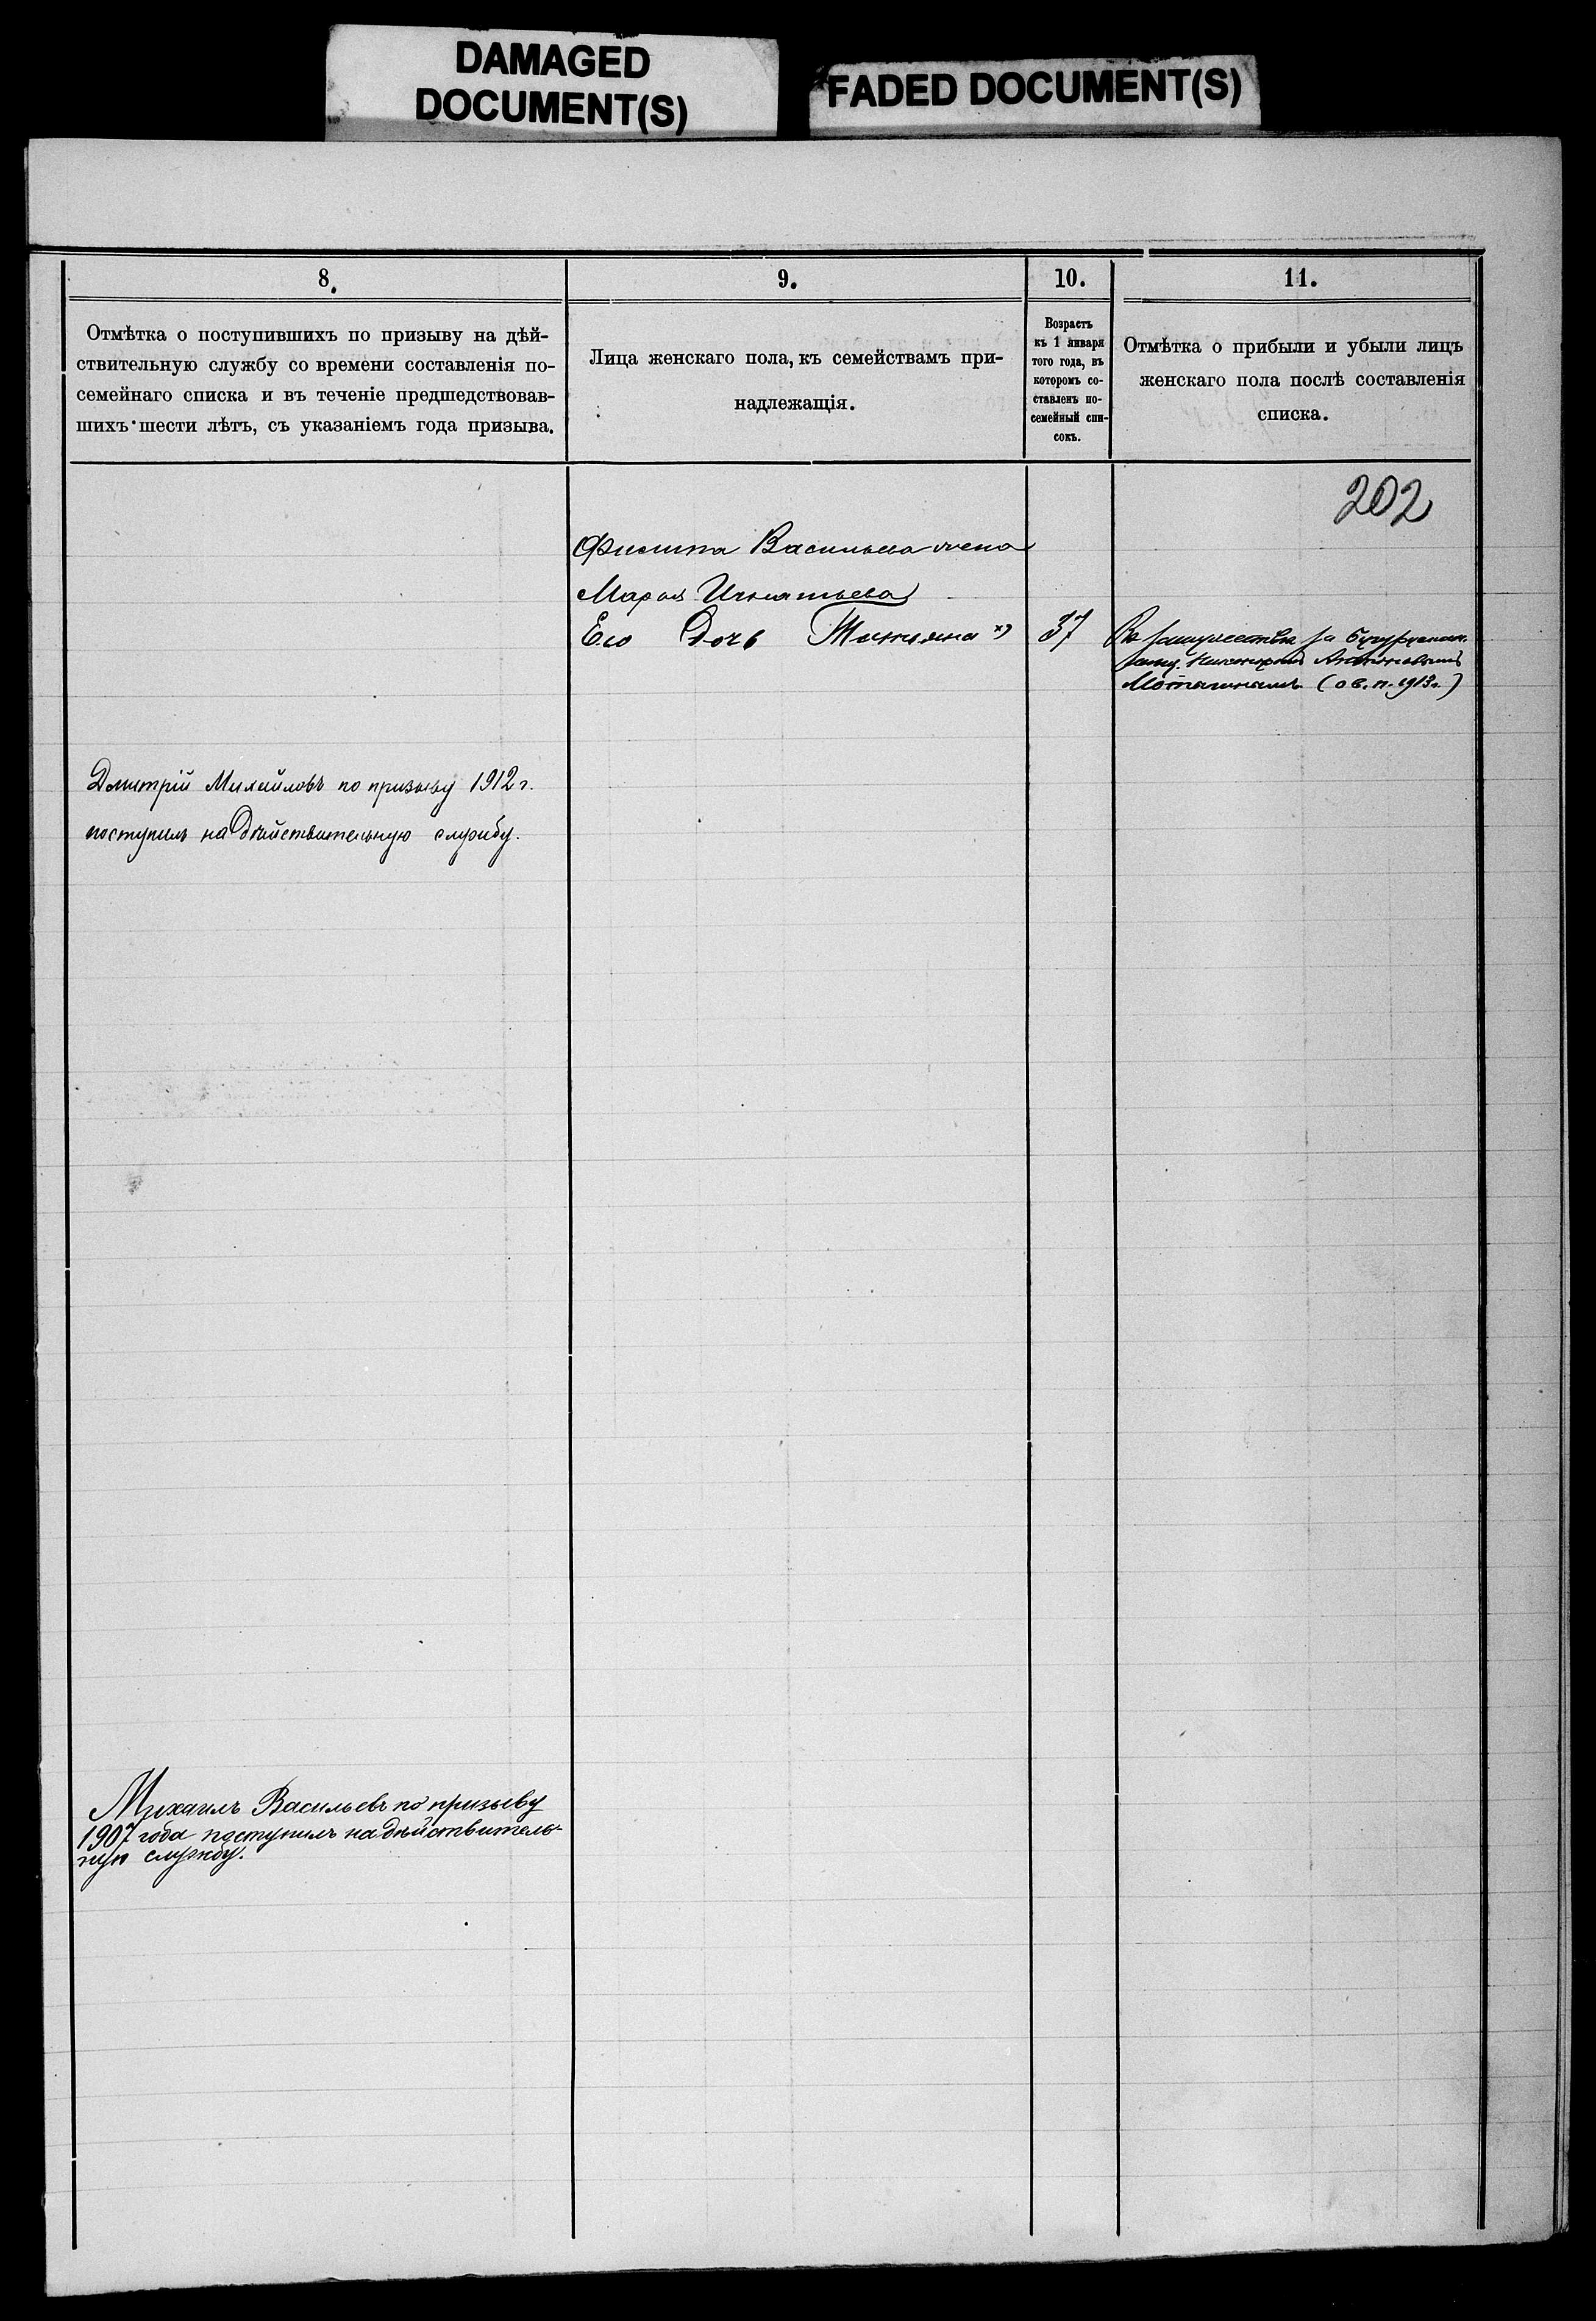 DAMAGED
DOCUMENT(S)
FADED DOCUMENT(S)
8.
Отмѣтка о поступившихъ по призыву на дѣй-
ствительную службу со времени составленія по-
семейнаго списка и въ теченіе предшедствовав-
шихъ шести лѣтъ, съ указаніемъ года призыва.
9.
Лица женскаго пола, къ семействамъ при-
надлежащія.
10.
Возрастъ
къ 1 января
того года, въ
которомъ со-
ставленъ по-
семейный спи-
сокъ.
11.
Отмѣтка о прибыли и убыли лицъ
женскаго пола послѣ составленія
списка.
202
Филипа Васильева жена
Марья Игнатьева
Его Дочь Татьяна х)
37
Въ замужествѣ за
(о в. п. 1913г.)
Дмитрій Михайловъ по призыву 1912 г.
поступилъ на Дѣйствительную службу.
Михаилъ Васильевъ по призыву
1907 года поступилъ на дѣйствитель-
ную службу.